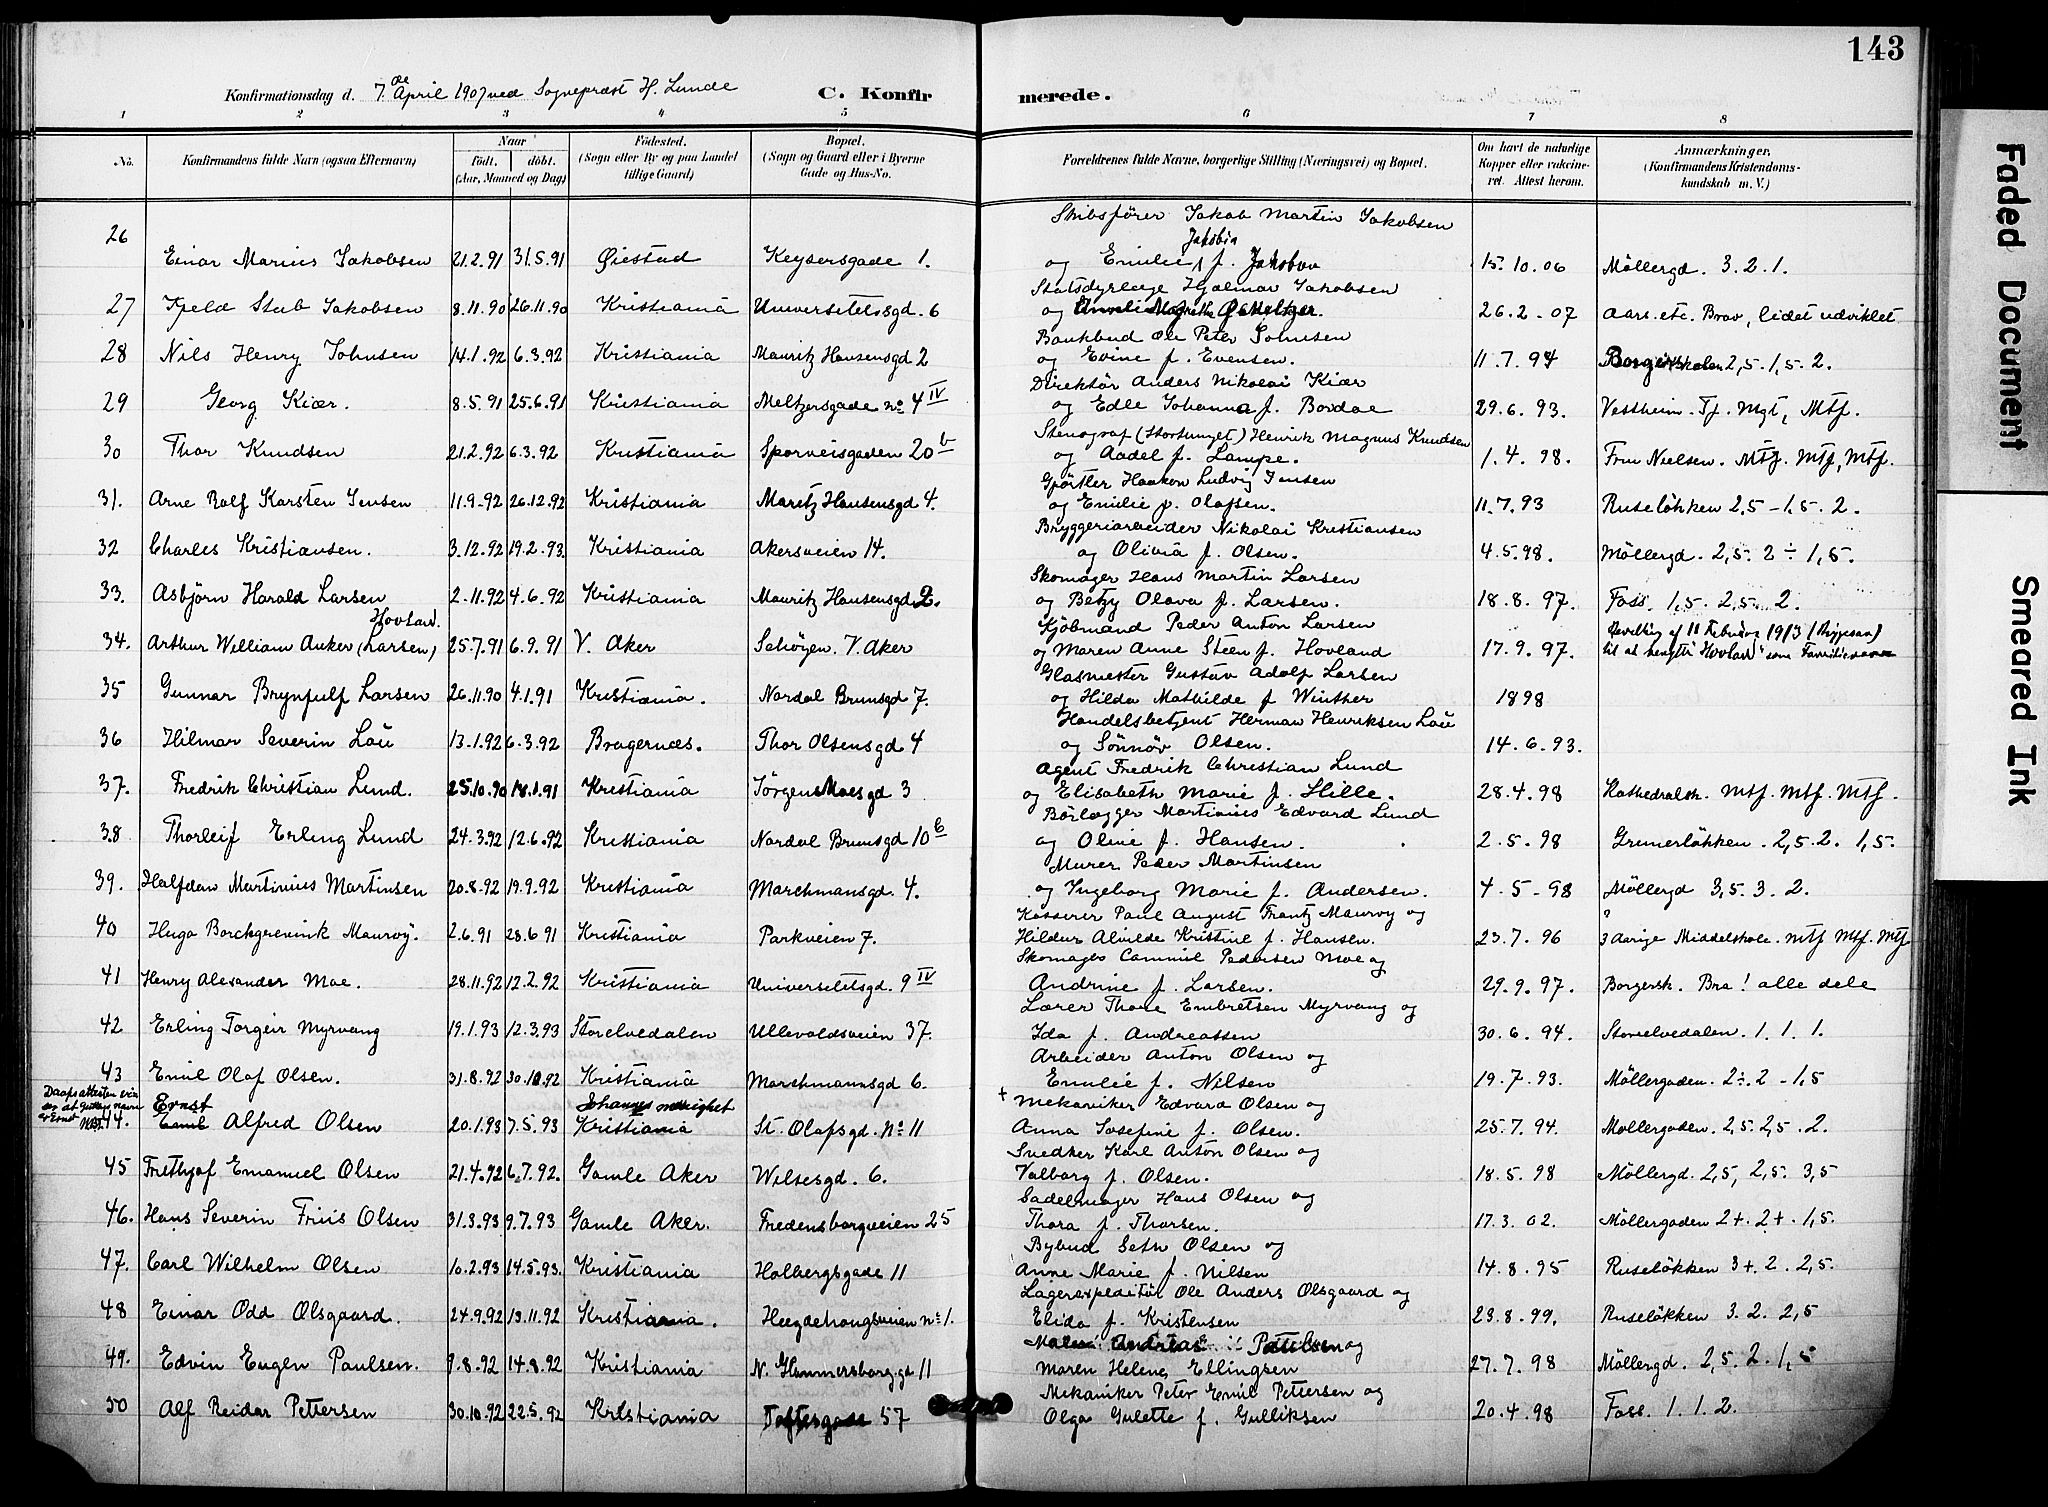 143
Konfirmationsdag d. 7de April 1907 ved Sogneprest H. Lunde
C. Konfirmerede.
1 2 3 4 5 6 7 8
No. Konfirmandens fulde Navn (ogsaa Efternavn) Naar födt. döbt. (Aar, Maaned og Dag) Födested. (Sogn eller By og paa Landet tillige Gaard) Bopæl. (Sogn og Gaard eller i Byerne Gade og Hus-No. Forældrenes fulde Navne, borgerlige Stilling (Næringsvei) og Bopæl. Om havt de naturlige Kopper eller vaccineret. Attest herom. Anmærkninger. (Konfirmandens Kristendomskundskab m. V.)
Skibsfører Jakob Martin Jakobsen
26 Einar Marius Jakobsen 21.2.91 31.5.91 Øiestad Keysersgade 1. og Emilie Jakobia f. Jakobsen 15.10.06 Möllergd. 3.2.1.
Statsdyrlæge Hjalmar Jakobsen
27 Kjeld Stub Jakobsen 8.11.90 26.11.90 Kristiania Universitetsgd. 6 og 26.2.07 Aars. etc. Brav, lidet udviklet
Bankbud Ole Peter Johnsen
28 Nils Henry Johnsen 14.1.92 6.3.92 Kristiania Mauritz Hansensgd 2 og Evine f. Evensen. 11.7.94 Borgerskolen 2,5.1,5.2.
Direktör Anders Nikolai Kiær
29 Georg Kiær. 8.5.91 25.6.91 Kristiania Meltzersgade No 4 IV og Edle Johanna f. Bordoe 29.6.93. Vestheim. Tf. Mgt, Mtf.
Stenograf (Stortinget) Henrik Magnus Knudsen
30 Thor Knudsen 21.2.92 6.3.92 Kristiania Sporveisgaden 20 b og Aadel f. Lampe. 1.4.98. Fru Nielsen. Mtf. Mtf, Mtf.
Gjörtler Haakon Ludvig Jensen
31. Arne Rolf Karsten Jensen 11.9.92 26.12.92 Kristiania Maritz Hansensgd 4. og Emilie f. Olafsen. 11.7.93 Ruseløkken 2,5 - 1,5. 2.
Bryggeriarbeider Nikolai Kristiansen
32 Charles Kristiansen. 3.12.92 19.2.93. Kristiania Akersveien 14. og Olivia f. Olsen. 4.5.98. Möllergd. 2,5. 2 ÷ 1,5.
Skomager Hans Martin Larsen
33. Asbjörn Harald Larsen 2.11.92 4.6.92 Kristiania Mauritz Hansensgd 2. og Betzy Olava f. Larsen. 18.8.97. Foss. 1,5. 2,5. 2.
Hovland.
Kjöbmand Peder Anton Larsen
Bevilling af 11 Februar 1913
34. Arthur William Anker (Larsen) 25.7.91 6.9.91 V. Aker Schøyen. V. Aker og Maren Anne Steen f. Hovland 17.9.97. til at benytte "Hovland" som Familienavn
Glasmester Gustav Adolf Larsen
35 Gunnar Brynjulf Larsen 26.11.90 4.1.91 Kristiania. Nordal Brunsgd 7. og Hilda Mathilde f Winther 1898
Handelsbetjent Herman Henriksen Lau
36 Hilmar Severin Lau 13.1.92 6.3.92 Bragernæs. Thor Olsensgd 4 og Sönnöv Olsen. 14.6.93.
Agent Fredrik Christian Lund
37. Fredrik Christian Lund. 25.10.90 18.1.91 Kristiania Jörgen Moesgd 3 og Elisabeth Marie f. Hille. 28.4.98 Kathedralsk. Mtf. Mtf. Mtf.
Börlægger Martinius Edvard Lund
38 Thorleif Erling Lund 24.3.92 12.6.92 Kristiania Nordal Brunsgd 10 b og Oline f. Hansen. 2.5.98 Grunerløkken. 2,5.2. 1,5.
Murer Peder Martinsen
39. Halfdan Martinius Martinsen 20.8.92 19.9.92 Kristiania Marchmansgd. 4. og Ingeborg Marie f. Andersen. 4.5-98 Möllergd 3,5. 3. 2.
Kasserer Paul August Frantz Maurvy og
40 Hugo Borchgrevink Maurvy. 2.6.91 28.6.91 Kristiania Parkveien 7. Hildur Alvilde Kristine f. Hansen. 23.7.96 3 Aarige Middelskole. Mtf Mtf. Mtf
Skomager Cammil Pedersen Moe og
41 Henry Alexander Moe. 28.11.92 12.2.92 Kristiania Universitetsgd. 9 IV Andrine f. Larsen. 29.9.97. Borgersk. Bra! alle dele
Lærer Thore Embretsen Myrvang og
42 Erling Torgeir Myrvang 19.1.93 12.3.93 Storelvedalen Ullevoldsveien 37. Ida f. Andreassen 30.6.94. Storelvedalen. 1.1.1.
Arbeider Anton Olsen og
43 Emil Olaf Olsen. 31.8.92 30.10.92 Kristiania Marchmannsgd 6. Emilie f. Nilsen 19.7.93. Möllergaden. 2÷.2 - 1,5
Daabsattesten viser at guttens navn er Ernst
Ernst Johannes menighet + Mekaniker Edvard Olsen og
44. Emil Alfred Olsen 20.1.93 7.5.93 Kristiania St. Olafsgd. No 11 Anna Josefine f. Olsen. 25.7.94. Møllergaden. 2,5. 2,5. 2.
Snedker Karl Anton Olsen og
45 Frithjof Emanuel Olsen 21.4.92 6.7.92. Gamle Aker Wilsesgd. 6. Valborg f. Olsen. 18.5.98 Möllergd. 2,5, 2,5. 3,5
Sadelmager Hans Olsen og
46. Hans Severin Friis Olsen 31.3.93 9.7.93 Gamle Aker. Fredensborgveien 25 Thora f. Thorsen. 17.3.02. Möllergaden 2+. 2+. 1,5.
Bybud Seth Olsen og
47. Carl Wilhelm Olsen 16.2.93 14.5.93. Kristiania Holbergsgade 11 Anne Marie f. Nilsen 14.8.95 Ruseløkken 3+. 2. 2,5.
Lagerexpeditör Ole Anders Olsgaard og
48 Einar Odd Olsgaard. 24.9.92 13.11.92 Kristiania. Hægdehougsveien No 1. Elida f. Kristensen 23.8.99. Ruseløkken 3. 2. 2,5
Andreas Paulsen og
49. Edvin Eugen Paulsen. 9.8.92 14.8.92 Kristiania N. Hammersborg.gd 11 Maren Helene Ellingsen 27.7.98 Möllergd. 2,5. 2. 1,5
Mekaniker Peter Emil Pettersen og
50 Alf Reidar Pettersen 30.10.92 22.5.92 Kristiania Toftesgade 57 Olga Gulette f. Gulliksen 20.4.98 Foss. 1.1.2.
Faded Document
Smeared Ink